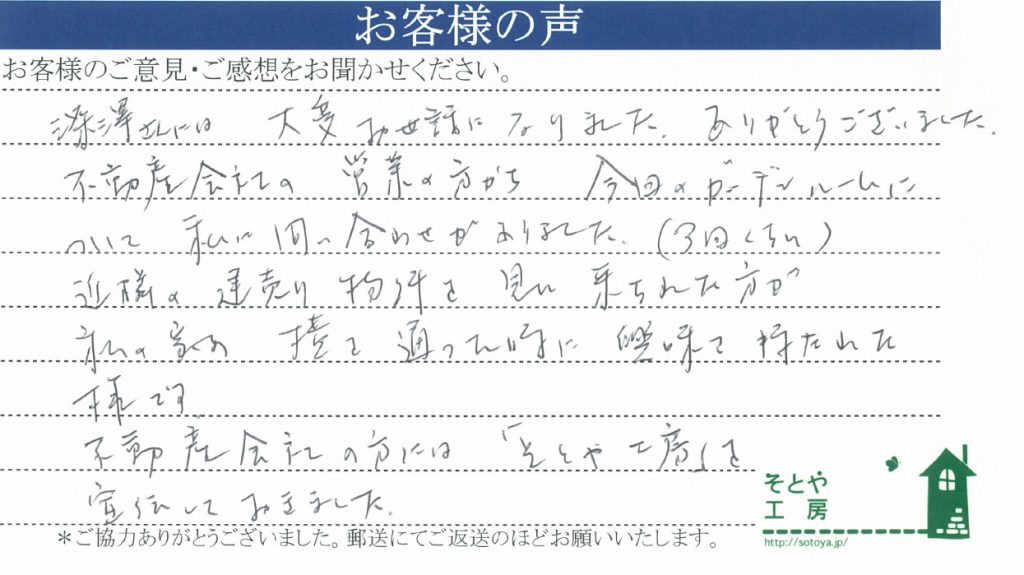 お客様の声
お客様のご意見・ご感想をお聞かせください。
深澤さんには 大変お世話になりました。ありがとうございました。
不動産会社の 営業の方から 今回のガーデンルームに
ついて 私に問い合わせがありました。(3回くらい)
近隣の 建売り物件を 見に来られた方が
私の家の 横を通った時に 興味を持たれた
様です
不動産会社の方には 「そとや工房」を
宣伝しておきました。
そとや
工房
http://sotoya.jp/
＊ご協力ありがとうございました。郵送にてご返送のほどお願いいたします。